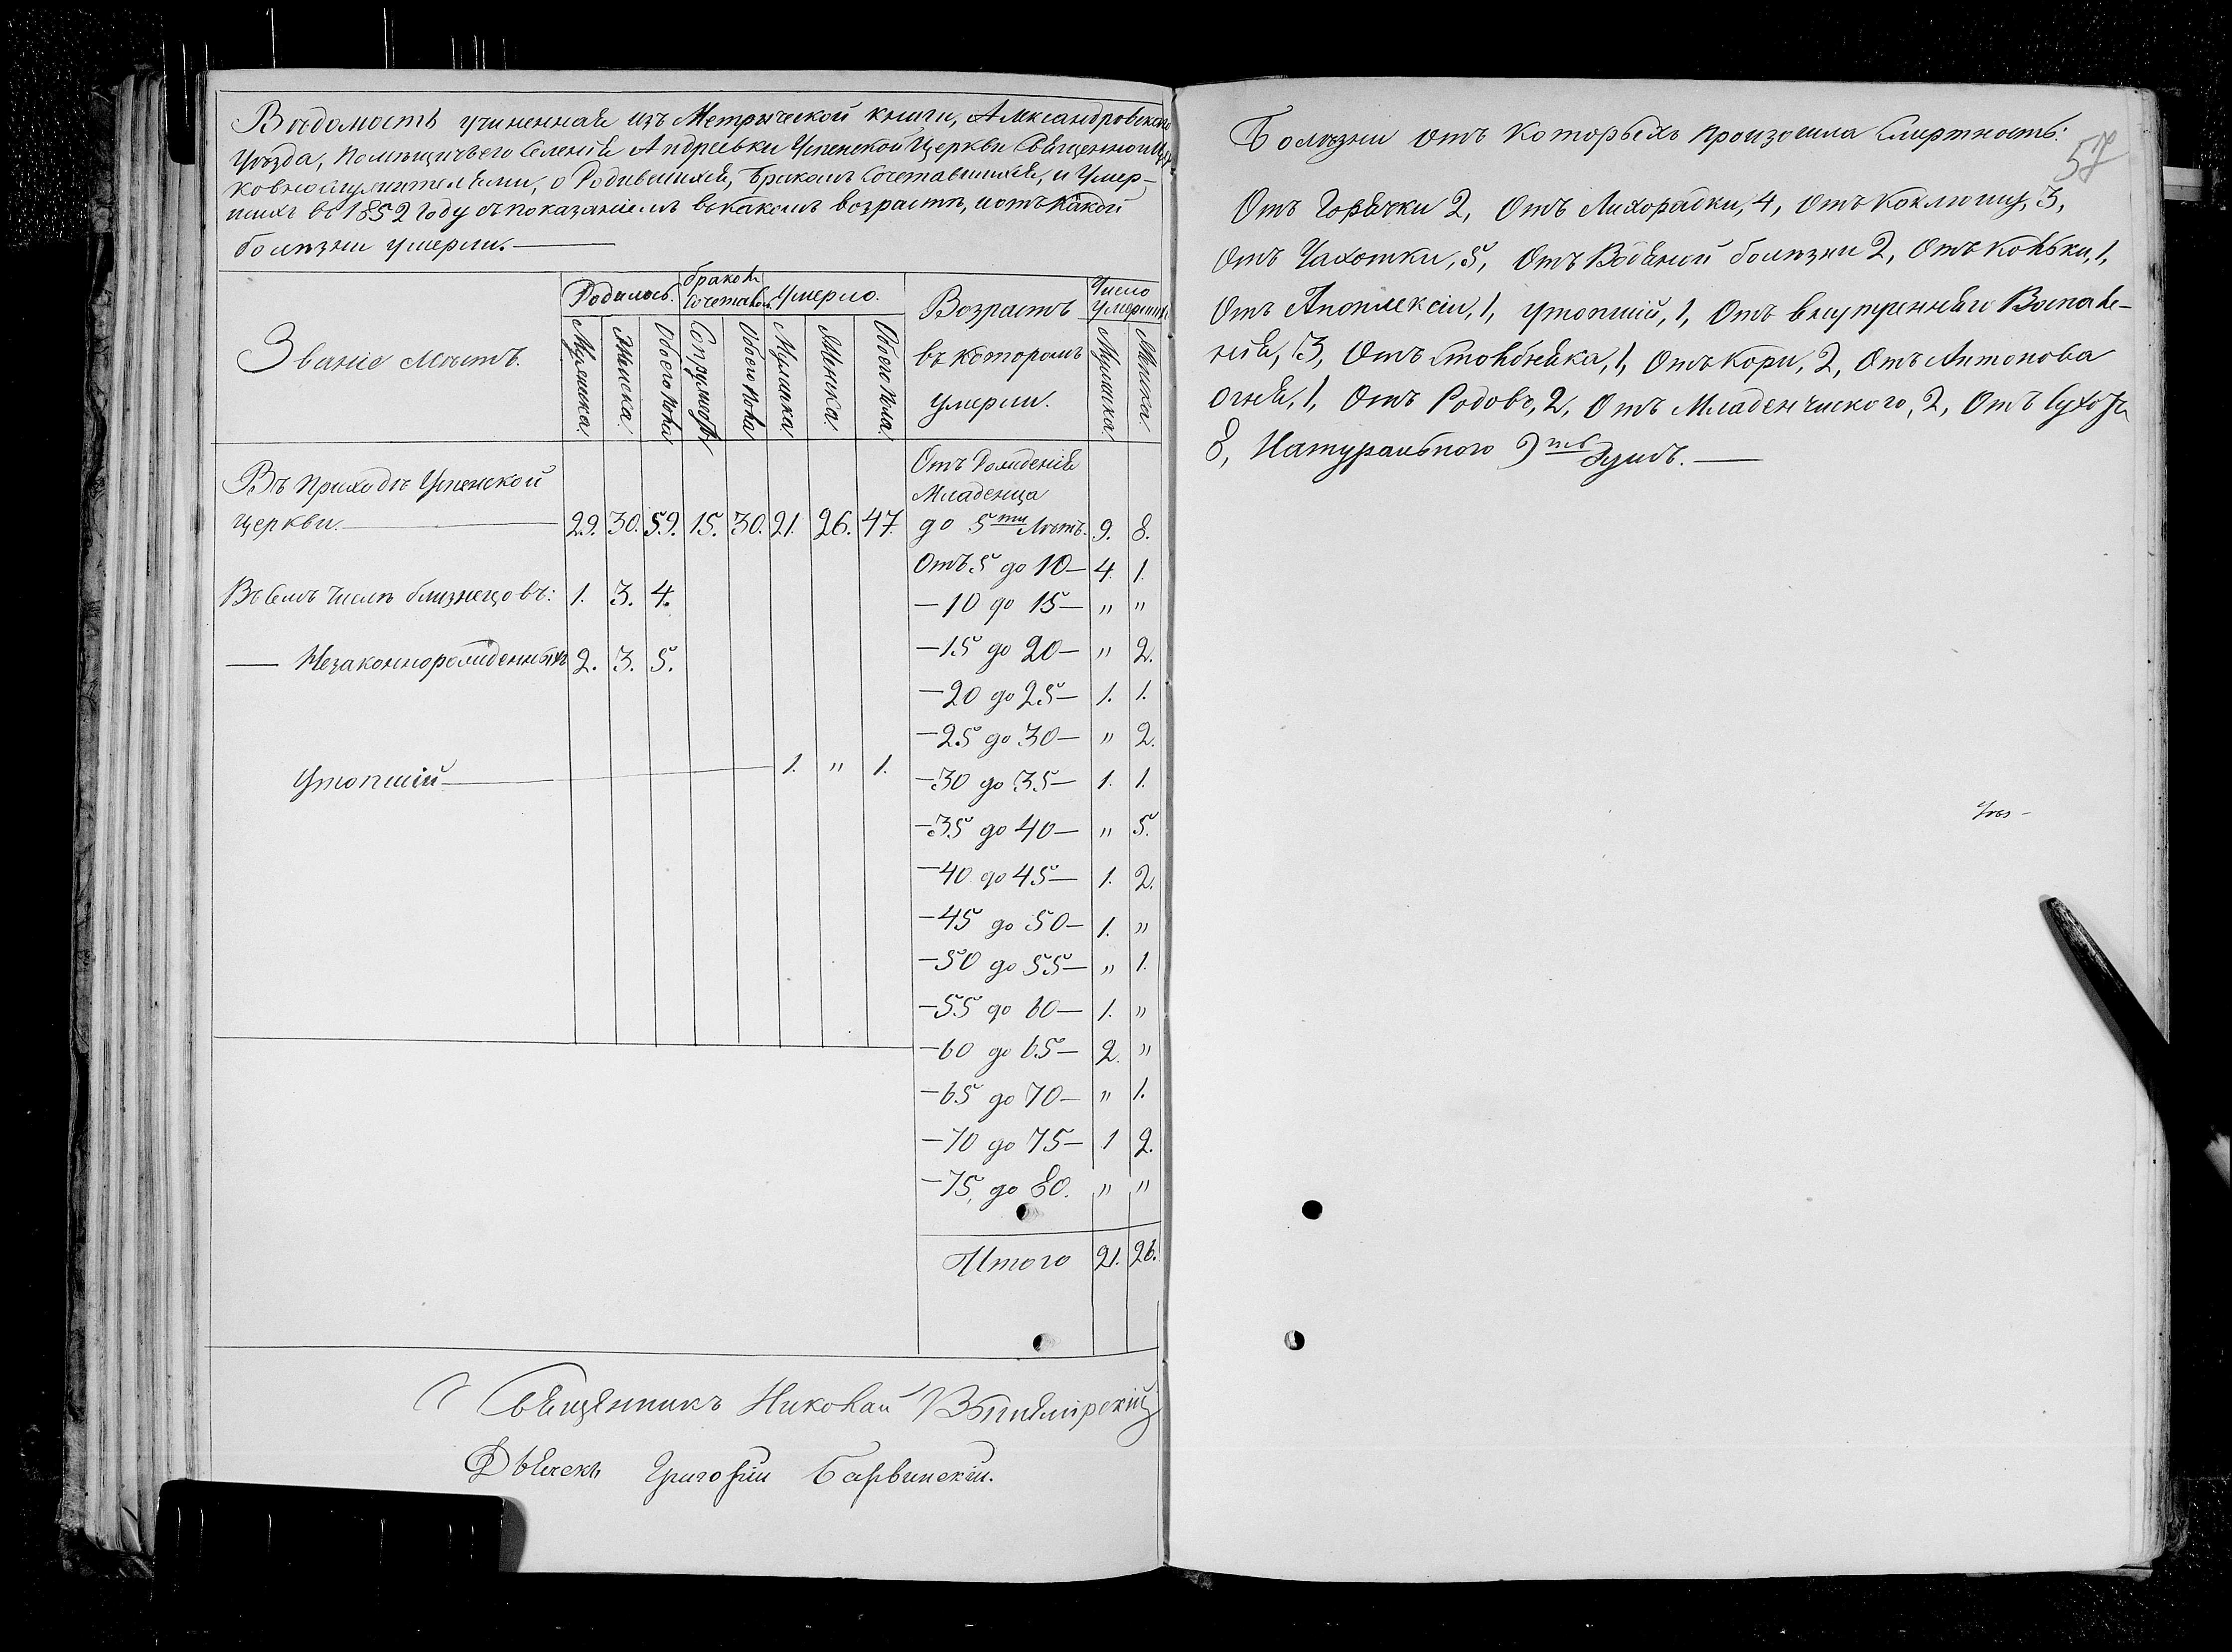 Вѣдомость учиненная изъ Метрической книги, Александровскаго
Уѣзда, Помѣщичьего Селенія Андреевки Успенской Церкви Священноцер-
ковнослужителями, о Родившихся, Бракомъ Сочетавшихся, и Умер-
шихъ въ 1852 году съ показаніемъ въ какомъ возрастѣ, и отъ какой
болѣзни умерли.
Званіе мѣстъ.
Родилось.
Браковъ
Сочетавш.
Умерло.
Возрастъ
въ которомъ
умерли.
Число
Умершихъ
Мужеска.
Женска.
Обоего пола
Супружествъ
Обоего пола
Мужеска
Женска.
Обоего пола.
Мужеска.
Женска.
Въ приходѣ Успенской
церкви. 29. 30. 59. 15. 30. 21. 26. 47.
Отъ Рожденія
Младенца
до 5ти Лѣтъ. 9. 8.
Отъ 5 до 10 — 4. 1.
Въ семъ числѣ близнецовъ: 1. 3. 4.
— 10 до 15 — " "
— 15 до 20 — " 2.
— Незаконнорожденныхъ 2. 3. 5.
— 20 до 25 — 1. 1.
— 25 до 30 — " 2.
Утопшій — 1. " 1.
— 30 до 35 — 1. 1.
— 35 до 40 — " 5.
— 40 до 45 — 1. 2.
— 45 до 50 — 1. "
— 50 до 55 — " 1.
— 55 до 60 — 1. "
— 60 до 65 — 2. "
— 65 до 70 — " 1.
— 70 до 75 — 1 2.
— 75, до 80. " "
Итого 21. 26.
Священникъ Николай
Дьячекъ Григорій Барвинскій.
57
Болѣзни отъ которыхъ произошла Смертность:
Отъ Горячки 2, Отъ Лихорадки, 4, Отъ Коклюшу, 3,
Отъ Чахотки, 5, Отъ Водяной болѣзни 2, Отъ Кольки, 1,
Отъ Апоплексіи, 1, утопшій, 1, Отъ внутренняго Воспале-
нія, 3, Отъ Столбняка, 1, Отъ Кори, 2, Отъ Антонова
огня, 1, Отъ Родовъ, 2, Отъ Младенческого, 2, Отъ
8, Натурального 9ть душъ.